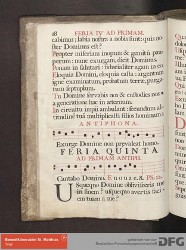 28 FERIA IV AD PRIMAM.
cabimur: labia nostra a nobis sunt: quis no-
ster Dominus est?
Propter miseriam inopum & gemitū pau-
perum: nunc exurgam, dicit Dominus.
Ponam in salutari: fiducialiter agam in eo.
Eloquia Domini, eloquia casta: argentum
igne examinatum, probatum terræ, purga-
tum septuplum.
Tu Domine servabis nos & custodies nos
a generatione hac in æternum.
In circuitu impii ambulant: secundum al-
titudinē tuā multiplicasti filios hominum.
ANTIPHONA.
Exurge Domine non prævaleat homo.
FERIA QUINTA
AD PRIMAM ANTIPH.
Cantabo Domino. E u o u a e. Ps. 12.
Usquequo Domine oblivisceris me
in finem: usquequo avertis faci-
em tuam a me?
Benediktinerabtei St. Matthias, Trier
gefördert von der
DFG
Deutschen Forschungsgemeinschaft